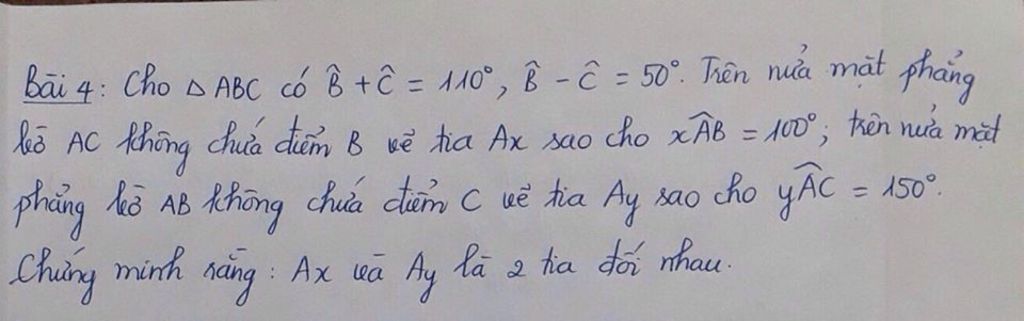 Bài 4: Cho △ ABC có B̂ + Ĉ = 110°, B̂ - Ĉ = 50°. Trên nửa mặt phẳng
bờ AC không chứa điểm B vẽ tia Ax sao cho xÂB = 100°; trên nửa mặt
phẳng bờ AB không chứa điểm C vẽ tia Ay sao cho yÂC = 150°.
Chứng minh rằng: Ax và Ay là 2 tia đối nhau.